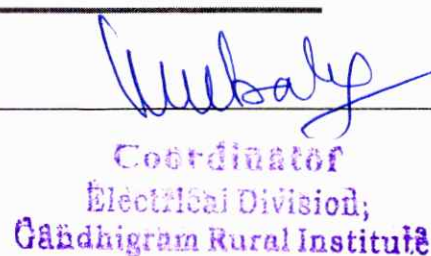 Coordinator
Electrical Division;
Gandhigram Rural Institute